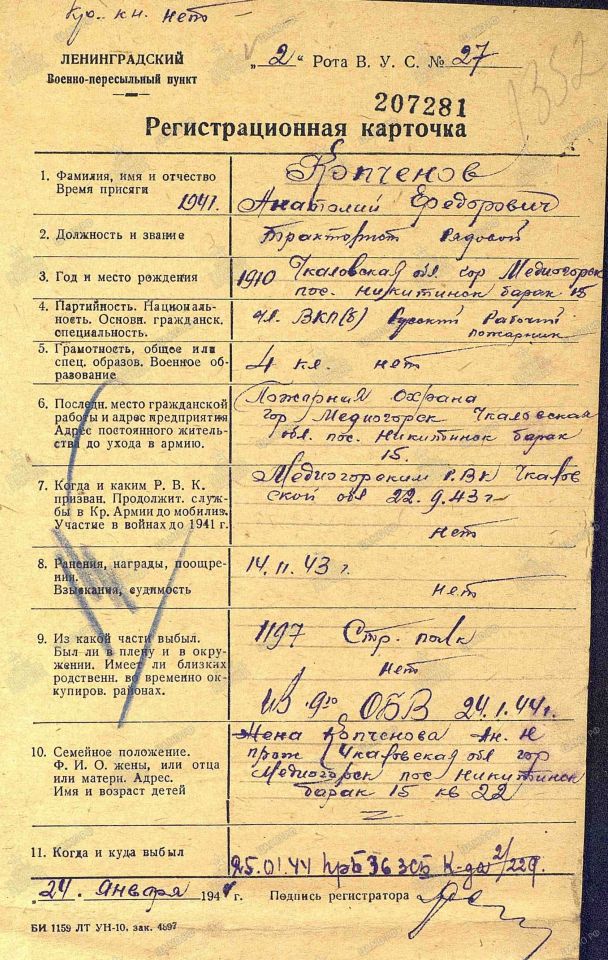 Кр. кн. нет
ЛЕНИНГРАДСКИЙ
Военно-пересыльный пункт
„2“ Рота В. У. С. № 27
1352
207281
Регистрационная карточка
1. Фамилия, имя и отчество
Время присяги
1941.
Копченов
Анатолий Федорович
2. Должность и звание
Тракторист Рядовой
3. Год и место рождения
1910 Чкаловская обл. гор Медногорск
пос. Никитинск барак 15
4. Партийность. Националь-
ность. Основн. гражданск.
специальность.
чл. ВКП(б) Русский Рабочий
пожарник
5. Грамотность, общее или
спец. образов. Военное об-
разование
4 кл. нет
6. Последн. место гражданской
работы и адрес предприятия
Адрес постоянного житель-
ства до ухода в армию.
Пожарная охрана
гор Медногорск Чкаловская
обл. пос. Никитинск барак
15.
7. Когда и каким Р. В. К.
призван. Продолжит. служ-
бы в Кр. Армии до мобилиз.
Участие в войнах до 1941 г.
Медногорским РВК Чкалов
ской обл 22.9.43 г
нет
8. Ранения, награды, поощре-
нии.
Взыскания, судимость
14.11.43 г.
нет
9. Из какой части выбыл.
Был ли в плену и в окру-
жении. Имеет ли близких
родственн. во временно ок-
купиров. районах.
1197 Стр. полк
нет
из ОБВ 24.1.44г.
10. Семейное положение.
Ф. И. О. жены, или отца
или матери. Адрес.
Имя и возраст детей
Жена Копченова Ан. Н
прож Чкаловская обл гор
Медногорск пос Никитинск
барак 15 кв 22
11. Когда и куда выбыл
25.01.44 36 ЗСБ К-да 2/229.
„24“ января 1944 г.
Подпись регистратора
БИ 1159 ЛТ УН-10, зак. 4897